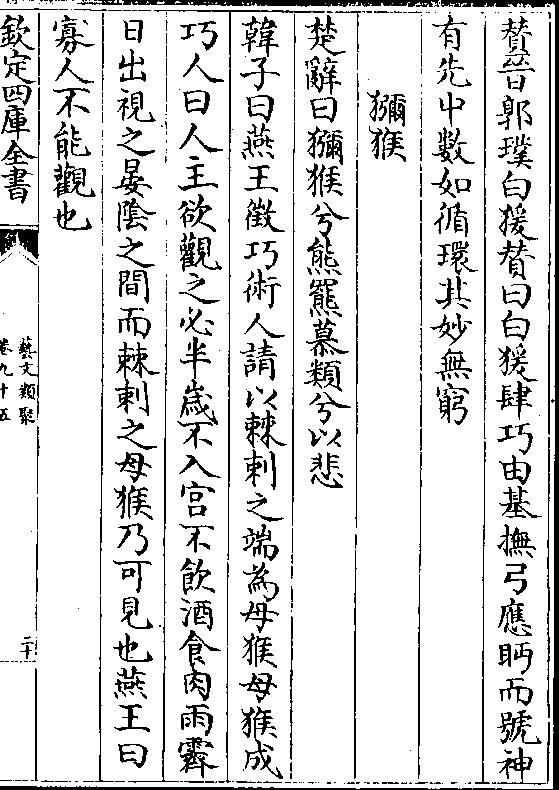 賛晉郭璞白猨賛曰白猨肆巧由基撫弓應眄而號神
有先中数如循環其妙無窮
獼猴
楚辭曰獼猴兮熊羆慕類兮以悲
韓子曰燕王徵巧術人請以棘刺之端為母猴母猴成
巧人曰人主欲觀之必半歲不入宫不飲酒食肉雨霽
日出視之晏陰之間而棘刺之母猴乃可見也燕王曰
寡人不能觀也
欽定四庫全書
藝文類聚
卷九十五
二十